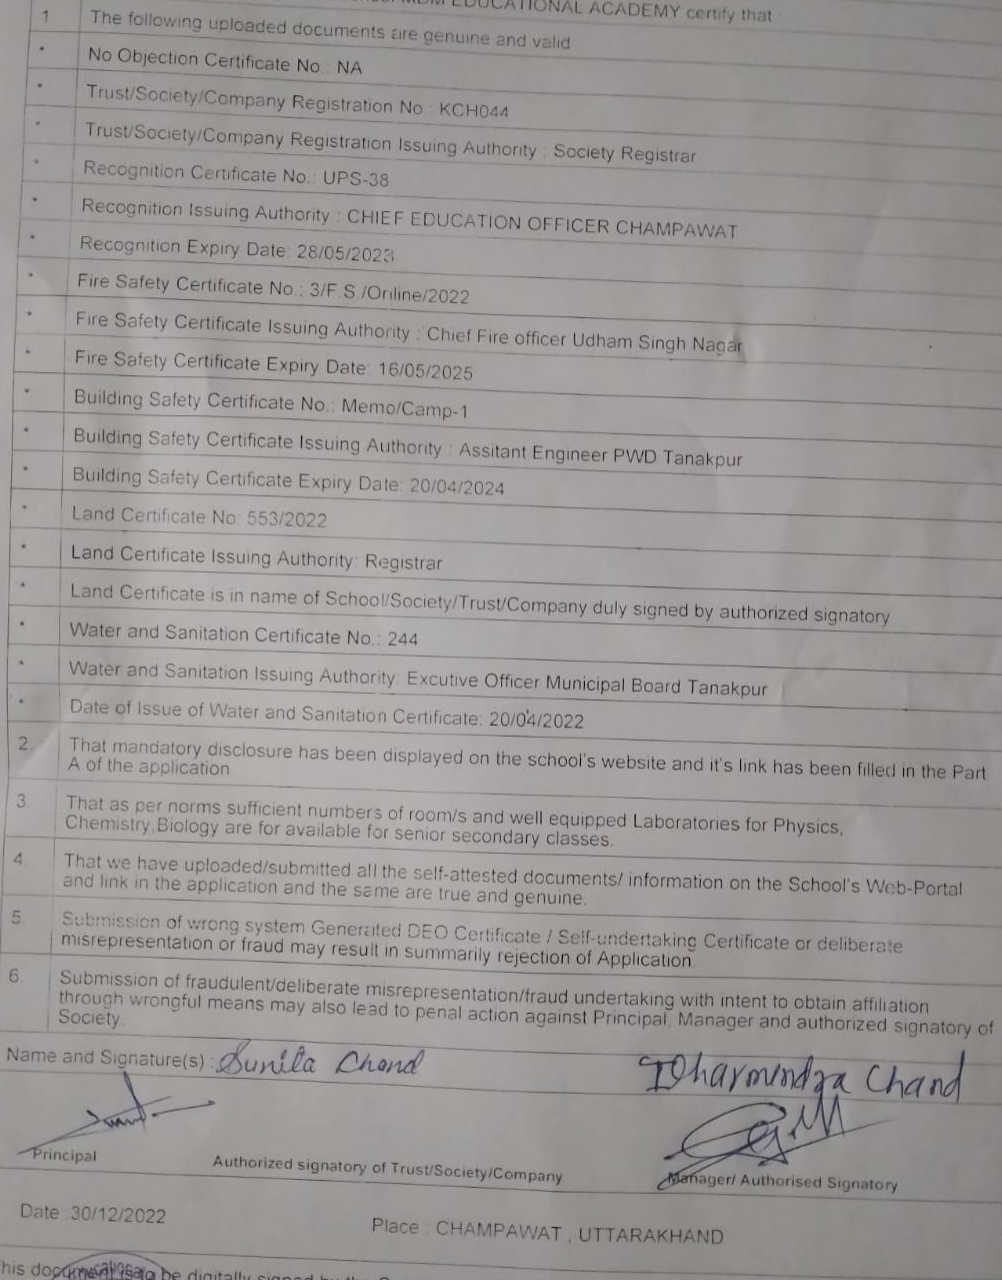 EDUCATIONAL ACADEMY certify that
1 The following uploaded documents are genuine and valid
* No Objection Certificate No.: NA
* Trust/Society/Company Registration No : KCH044
* Trust/Society/Company Registration Issuing Authority : Society Registrar
* Recognition Certificate No.: UPS-38
* Recognition Issuing Authority : CHIEF EDUCATION OFFICER CHAMPAWAT
* Recognition Expiry Date: 28/05/2023
* Fire Safety Certificate No.: 3/F.S./Online/2022
* Fire Safety Certificate Issuing Authority : Chief Fire officer Udham Singh Nagar
* Fire Safety Certificate Expiry Date: 16/05/2025
* Building Safety Certificate No.: Memo/Camp-1
* Building Safety Certificate Issuing Authority : Assitant Engineer PWD Tanakpur
* Building Safety Certificate Expiry Date: 20/04/2024
* Land Certificate No: 553/2022
* Land Certificate Issuing Authority: Registrar
* Land Certificate is in name of School/Society/Trust/Company duly signed by authorized signatory
* Water and Sanitation Certificate No.: 244
* Water and Sanitation Issuing Authority: Excutive Officer Municipal Board Tanakpur
* Date of Issue of Water and Sanitation Certificate: 20/04/2022
2. That mandatory disclosure has been displayed on the school's website and it's link has been filled in the Part
A of the application
3. That as per norms sufficient numbers of room/s and well equipped Laboratories for Physics,
Chemistry,Biology are for available for senior secondary classes.
4. That we have uploaded/submitted all the self-attested documents/ information on the School's Web-Portal
and link in the application and the same are true and genuine.
5. Submission of wrong system Generated DEO Certificate / Self-undertaking Certificate or deliberate
misrepresentation or fraud may result in summarily rejection of Application.
6. Submission of fraudulent/deliberate misrepresentation/fraud undertaking with intent to obtain affiliation
through wrongful means may also lead to penal action against Principal, Manager and authorized signatory of
Society.
Name and Signature(s) : Sunita Chand Dharmendra Chand
Principal Authorized signatory of Trust/Society/Company Manager/ Authorised Signatory
Date :30/12/2022 Place : CHAMPAWAT , UTTARAKHAND
be digitally signed by the